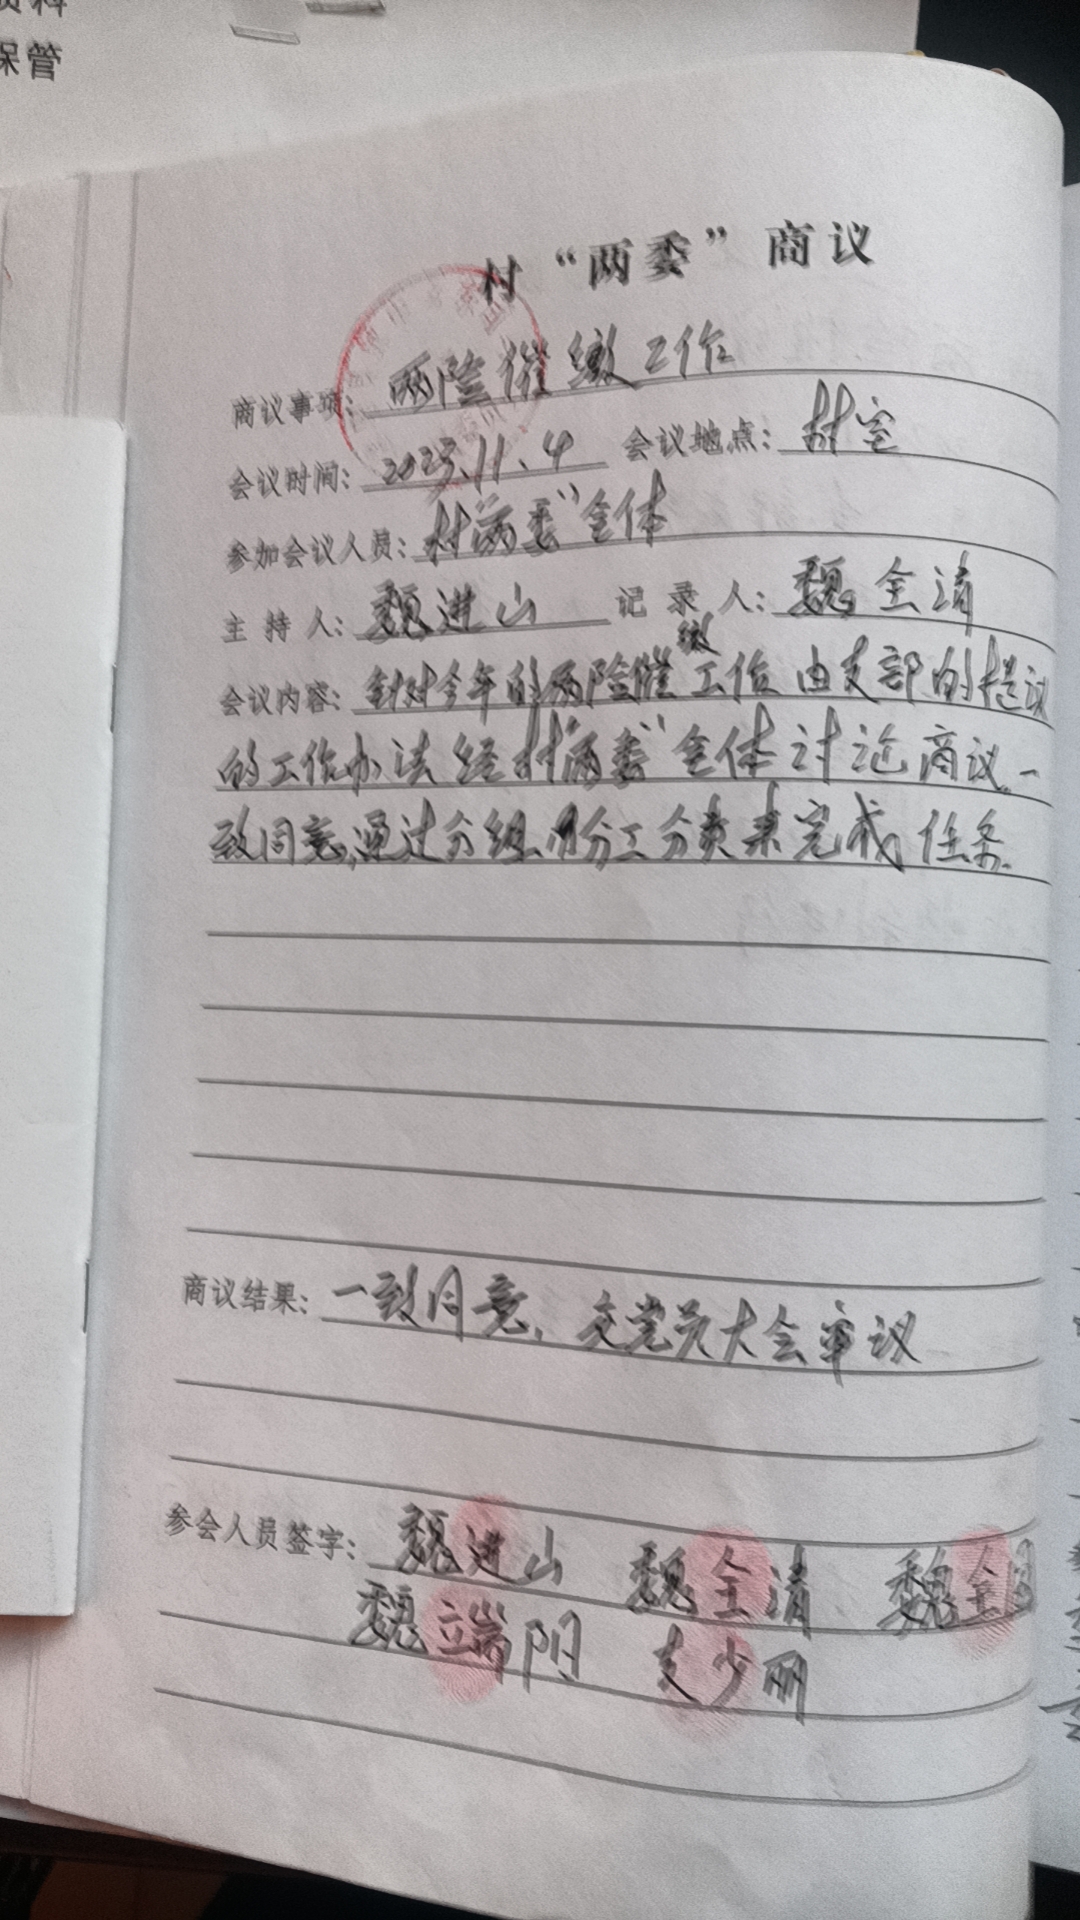 资料
保管
村“两委”商议
商议事项：两险催缴工作
会议时间：2023.11.4 会议地点：村室
参加会议人员：村“两委”全体
主持人：魏进山 记录人：魏全清
会议内容：针对今年的两险催缴工作由支部的提议
的工作办法经村“两委”全体讨论商议，一
致同意，通过分组份工分责来完成任务．
商议结果：一致同意，交党员大会审议
参会人员签字：魏进山 魏全清 魏全
魏端阳 支少丽